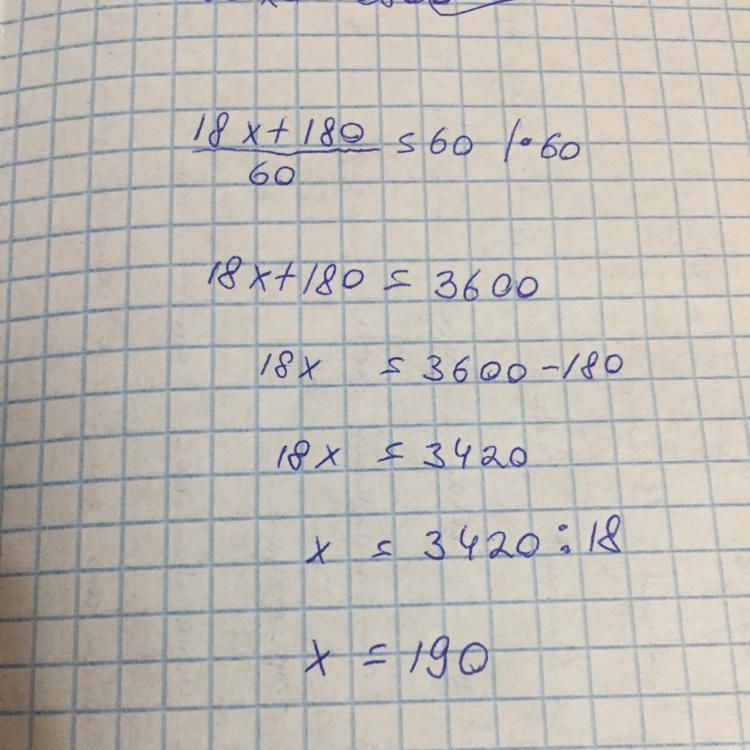 18x+180/60 = 60 /·60
18x+180 = 3600
18x = 3600-180
18x = 3420
x = 3420:18
x = 190